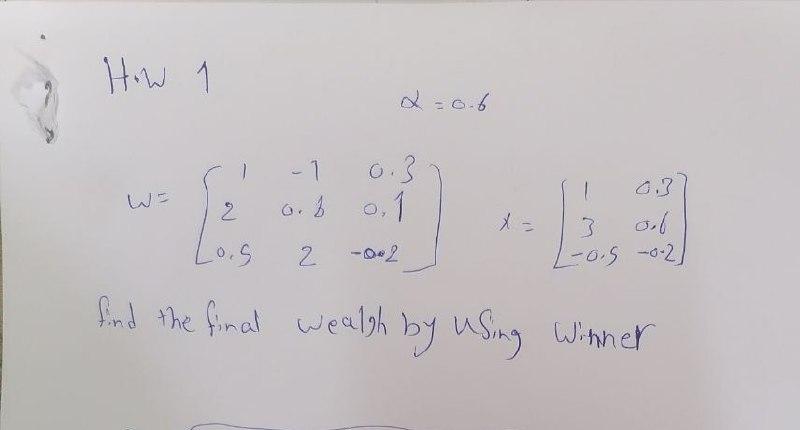 H.W 1
α = 0.6
W = [ 1 -1 0.3
2 0.6 0.1
0.5 2 -0.2 ]
x = [ 1 0.3
3 0.6
-0.5 -0.2 ]
find the final wealgh by using winner